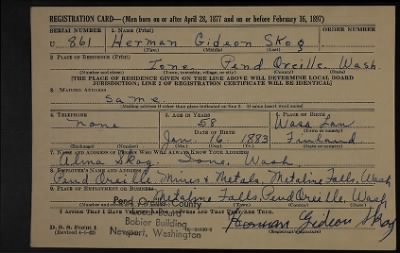 REGISTRATION CARD—(Men born on or after April 28, 1877 and on or before February 16, 1897)
SERIAL NUMBER 1. NAME (Print) ORDER NUMBER
U 861 Herman Gideon Skog
(First) (Middle) (Last)
2. PLACE OF RESIDENCE (Print)
Ione, Pend Oreille, Wash.
(Number and street) (Town, township, village, or city) (County) (State)
[THE PLACE OF RESIDENCE GIVEN ON THE LINE ABOVE WILL DETERMINE LOCAL BOARD
JURISDICTION; LINE 2 OF REGISTRATION CERTIFICATE WILL BE IDENTICAL]
3. MAILING ADDRESS
Same.
[Mailing address if other than place indicated on line 2. If same insert word same]
4. TELEPHONE 5. AGE IN YEARS 6. PLACE OF BIRTH
none 58 Wasa Lan
DATE OF BIRTH (Town or county)
Jan. 16. 1883 Finland
(Exchange) (Number) (Mo.) (Day) (Yr.) (State or country)
7. NAME AND ADDRESS OF PERSON WHO WILL ALWAYS KNOW YOUR ADDRESS
Alma Skog. Ione, Wash
8. EMPLOYER'S NAME AND ADDRESS
Pend Oreille Mines & Metals, Metaline Falls, Wash
9. PLACE OF EMPLOYMENT OR BUSINESS
Metaline Falls, Pend Oreille, Wash
(Number and street or R. F. D. number) (Town) (County) (State)
I AFFIRM THAT I HAVE VERIFIED ABOVE ANSWERS AND THAT THEY ARE TRUE.
Pend Oreille County
Local Board
Bobier Building
Newport, Washington
D. S. S. Form 1
(Revised 4-1-42)
Herman Gideon Skog
(Registrant's signature)